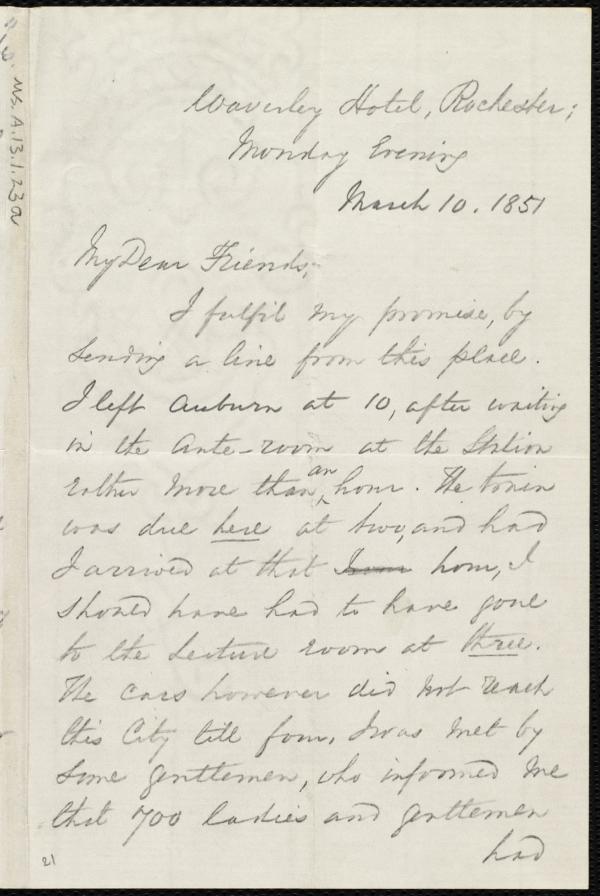 Ms. A.13.1.23a
Waverley Hotel, Rochester;
Monday Evening
March 10. 1851
My Dear Friends,
I fulfil my promise, by
sending a line from this place.
I left Auburn at 10, after waiting
in the ante-room at the Station
rather more than an hour. The train
was due here at two, and had
I arrived at that hour, I
should have had to have gone
to the Lecture room at three.
The cars however did not reach
this City till four. I was met by
some gentlemen, who informed me
that 700 ladies and gentlemen
had
21